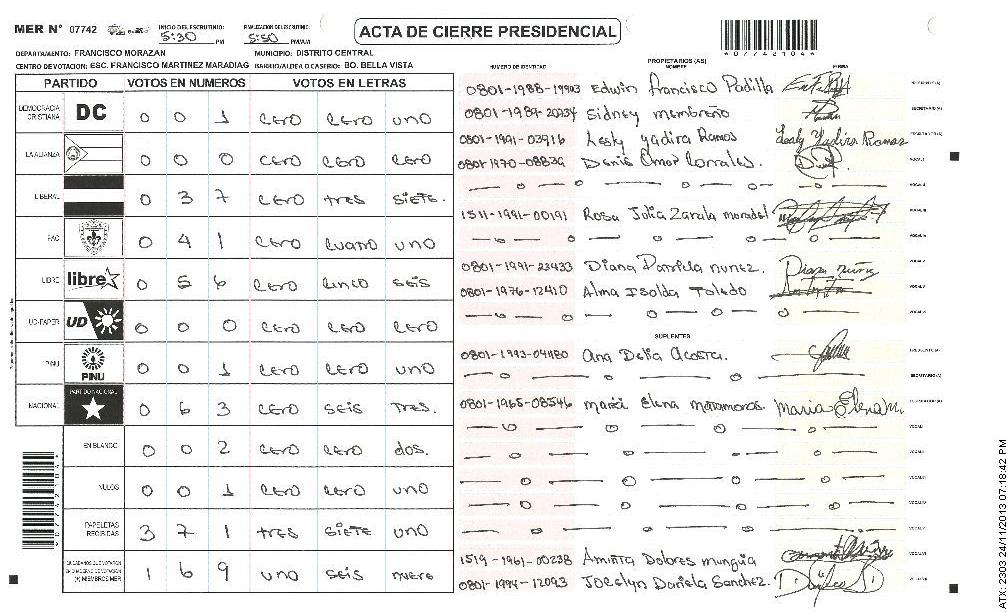 MER N° 07742 INICIO DEL ESCRUTINIO: 5:30 PM FINALIZACION DEL ESCRUTINIO: 5:50 PM/AM
ACTA DE CIERRE PRESIDENCIAL
DEPARTAMENTO: FRANCISCO MORAZAN MUNICIPIO: DISTRITO CENTRAL
CENTRO DE VOTACION: ESC. FRANCISCO MARTINEZ MARADIAG BARRIO/ALDEA O CASERIO: BO. BELLA VISTA
PARTIDO VOTOS EN NUMEROS VOTOS EN LETRAS
DEMOCRACIA CRISTIANA DC 0 0 1 cero cero uno
LA ALIANZA 0 0 0 cero cero cero
LIBERAL 0 3 7 cero tres siete.
PAC 0 4 1 cero cuatro uno
LIBRE libre 0 5 6 cero cinco seis
UD-FAPER UD 0 0 0 cero cero cero
PINU PINU 0 0 1 cero cero uno
NACIONAL PARTIDO NACIONAL 0 6 3 cero seis tres.
EN BLANCO 0 0 2 cero cero dos.
NULOS 0 0 1 cero cero uno
PAPELETAS RECIBIDAS 3 7 1 tres siete uno
1 6 9 uno seis nueve
NUMERO DE IDENTIDAD PROPIETARIOS (AS) NOMBRE FIRMA
0801-1988-19903 Edwin Francisco Padilla
0801-1989-20234 Sidney membreño
0801-1991-03916 Lesly Yadira Ramos Lesly Yadira Ramos
0801-1970-08839 Denis Omar Corrales.
1511-1991-00191 Rosa Julia
0801-1991-23433 Diana Daniela nunez. Diana nuñez
0801-1976-12410 Alma Isolda Toledo
SUPLENTES
0801-1993-04480 Ana Delia Acosta.
0801-1965-08546 maria Elena matamoros. Maria Elena M.
1519-1961-00238 Aminta Dolores mungúa
0801-1994-12093 Jocelyn Daniela Sanchez.
ATX: 2303 24/11/2013 07:18:42 PM